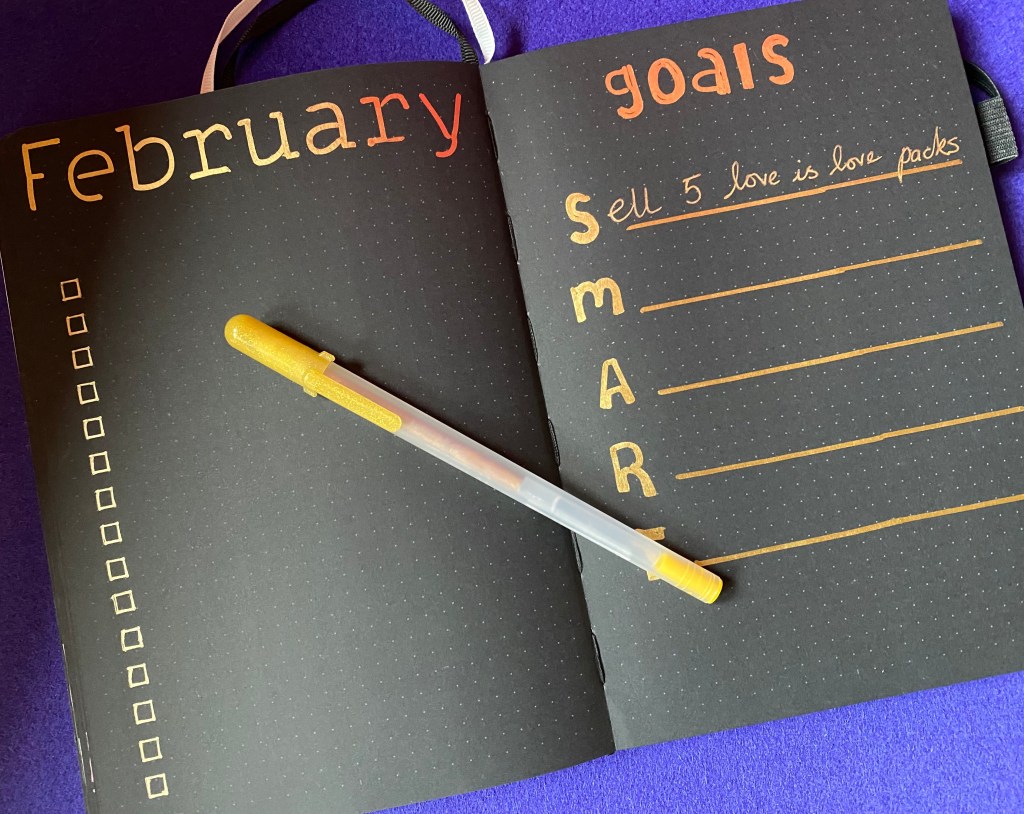 February
goals
Sell 5 love is love packs
M
A
R
T